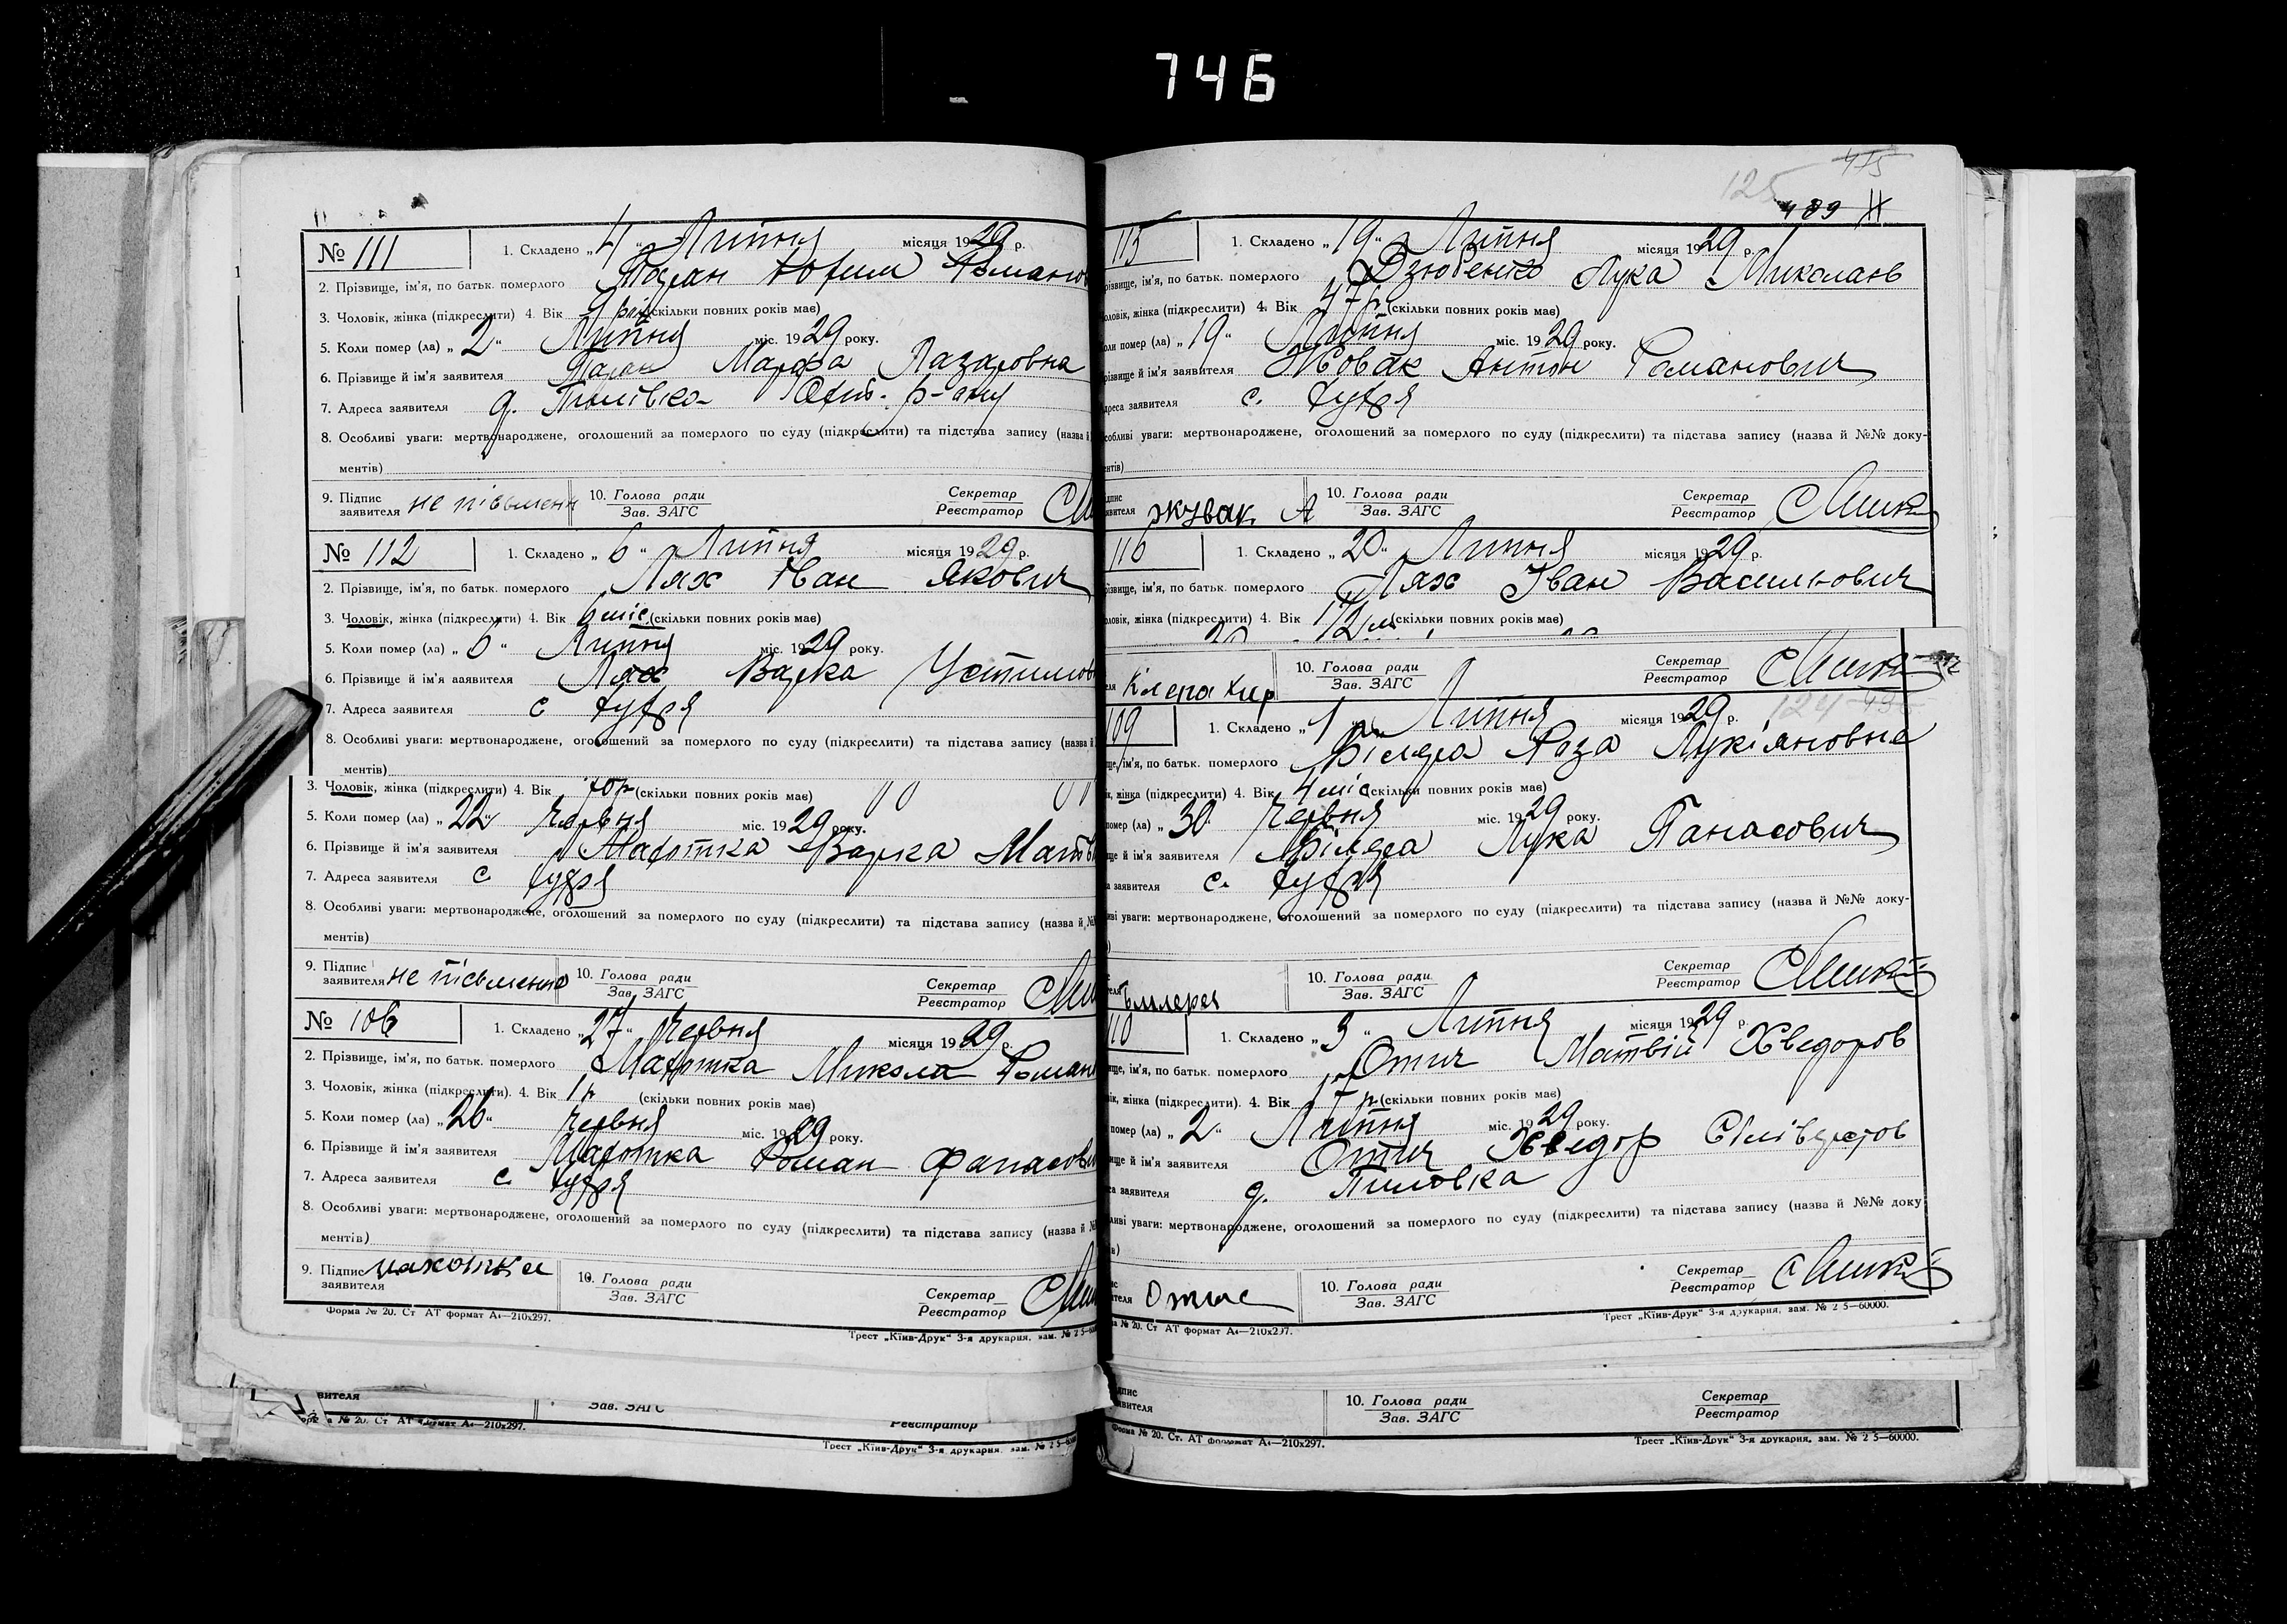 746
№ 111
1. Складено „ 4 “ Липня місяця 1929 р.
2. Прізвище, ім'я, по батьк. померлого
3. Чоловік, жінка (підкреслити) 4. Вік (скільки повних років має)
5. Коли помер (ла) „ 2 “ Липня міс. 1929 року.
6. Прізвище й ім'я заявителя Марфа Лазаровна
7. Адреса заявителя
8. Особливі уваги: мертвонароджене, оголошений за померлого по суду (підкреслити) та підстава запису (назва й
ментів)
9. Підпис заявителя не пісьменн 10. Голова ради Зав. ЗАГС Секретар Реєстратор
№ 112
1. Складено „ 6 “ Липня місяця 1929 р.
2. Прізвище, ім'я, по батьк. померлого Лях Іван Якович
3. Чоловік, жінка (підкреслити) 4. Вік 6 міс. (скільки повних років має)
5. Коли помер (ла) „ 6 “ Липня міс. 1929 року.
6. Прізвище й ім'я заявителя Лях Варка Устимов
7. Адреса заявителя с
8. Особливі уваги: мертвонароджене, оголошений за померлого по суду (підкреслити) та підстава запису (назва й
ментів)
3. Чоловік, жінка (підкреслити) 4. Вік 70 р (скільки повних років має)
5. Коли помер (ла) „ 22 “ Червня міс. 1929 року.
6. Прізвище й ім'я заявителя Варка
7. Адреса заявителя с.
8. Особливі уваги: мертвонароджене, оголошений за померлого по суду (підкреслити) та підстава запису (назва й №
ментів)
9. Підпис заявителя не пісьменна 10. Голова ради Зав. ЗАГС Секретар Реєстратор
№ 106
1. Складено „ 27 “ Червня місяця 1929 р.
2. Прізвище, ім'я, по батьк. померлого Микола Роман
3. Чоловік, жінка (підкреслити). 4. Вік 1 р (скільки повних років має)
5. Коли помер (ла) „ 26 “ Червня міс. 1929 року.
6. Прізвище й ім'я заявителя Роман
7. Адреса заявителя с.
8. Особливі уваги: мертвонароджене, оголошений за померлого по суду (підкреслити) та підстава запису (назва й №
ментів)
9. Підпис заявителя 10. Голова ради Зав. ЗАГС Секретар Реєстратор
Форма № 20. Ст АТ формат А4—210х297.
Трест „Київ-Друк“ 3-я друкарня, зам. № 2 5—60
вителя
Зав. ЗАГС
Реєстратор
№ 20. Ст АТ формат А4—210х297.
Трест „Київ-Друк“ 3-я друкарня, зам. № 2 5—60
125
489
115
1. Складено „ 19 “ Липня місяця 1929 р.
різвище, ім'я, по батьк. померлого Дзюбенко Лука Миколаїв
оловік, жінка (підкреслити) 4. Вік 47 р (скільки повних років має)
оли помер (ла) „ 19 “ Липня міс. 1929 року.
різвище й ім'я заявителя Антон Романович
дреса заявителя с.
собливі уваги: мертвонароджене, оголошений за померлого по суду (підкреслити) та підстава запису (назва й №№ доку-
ентів)
дпис аявителя жувак А 10. Голова ради Зав. ЗАГС Секретар Реєстратор
116
1. Складено „ 20 “ Липня місяця 1929 р.
різвище, ім'я, по батьк. померлого Лях Іван Васильович
оловік, жінка (підкреслити) 4. Вік (скільки повних років має)
10. Голова ради Зав. ЗАГС Секретар Реєстратор
109
1. Складено „ 1 “ Липня місяця 1929 р.
ще, ім'я, по батьк. померлого Лукіяновна
к, жінка (підкреслити) 4. Вік 4 міс (скільки повних років має)
помер (ла) „ 30 “ Червня міс. 1929 року.
ще й ім'я заявителя Лука Панасович
а заявителя с.
иві уваги: мертвонароджене, оголошений за померлого по суду (підкреслити) та підстава запису (назва й №№ доку-
10. Голова ради Зав. ЗАГС Секретар Реєстратор
110
1. Складено „ 3 “ Липня місяця 1929 р.
ще, ім'я, по батьк. померлого Отич Матвій Хведоров
ік, жінка (підкреслити). 4. Вік (скільки повних років має)
помер (ла) „ 2 “ Липня міс. 1929 року.
ище й ім'я заявителя Отич Хведор Сілівестров
са заявителя
ливі уваги: мертвонароджене, оголошений за померлого по суду (підкреслити) та підстава запису (назва й №№ доку
10. Голова ради Зав. ЗАГС Секретар Реєстратор
№ 20. Ст АТ формат А4—210х297.
Трест „Київ-Друк“ 3-я друкарня, зам. № 2 5—60000.
дпис
явителя
10. Голова ради Зав. ЗАГС Секретар Реєстратор
Форма № 20. Ст. АТ формат А4—210х297.
Трест „Київ-Друк“ 3-я друкарня, зам. № 2 5—60000.